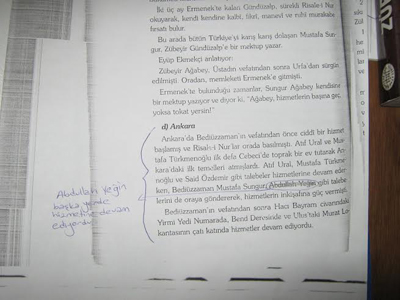 İki üç ay Ermenek'te kalan Gündüzalp, sürekli Risale-i Nur
okuyarak, kendi kendine kalbî, fikrî, manevî ve ruhî murakabe
hırsatı bulur.
Bu arada bütün Türkiye'yi karış karış dolaşan Mustafa Sun-
gur, Zübeyir Gündüzalp'e bir mektup yazar.
Eyüp Ekmekçi anlatıyor:
Zübeyir Ağabey, Üstadın vefatından sonra Urfa'dan sürgün
edilmişti. Oradan, memleketi Ermenek'e gitmişti.
Ermenek'te bulunduğu zamanlar, Sungur Ağabey kendisine
bir mektup yazıyor ve diyor ki, "Ağabey, hizmetlerin başına geç,
yoksa tokat yersin!"
d) Ankara
Ankara'da Bediüzzaman'ın vefatından önce ciddî bir hizmet
başlamış ve Risale-i Nur'lar orada basılmıştı. Atıf Ural ve Mus-
tafa Türkmenoğlu ilk defa Cebeci'de toprak bir ev tutarak An-
kara'daki ilk temelleri atmışlardı. Atıf Ural, Mustafa Türkme-
noğlu ve Said Özdemir gibi talebeler hizmetlerine devam eder-
ken, Bediüzzaman Mustafa Sungur, Abdullah Yeğin gibi talebe-
lerini de oraya göndererek, hizmetlerin inkişafına güç vermişti.
Bediüzzaman'ın vefatından sonra Hacı Bayram civarındaki
Yirmi Yedi Numarada, Bend Deresinde ve Ulus'taki Murat Lo-
kantasının çatı katında hizmetler devam ediyordu.
Abdullah Yeğin
başka yerde
hizmetine devam
ediyordu